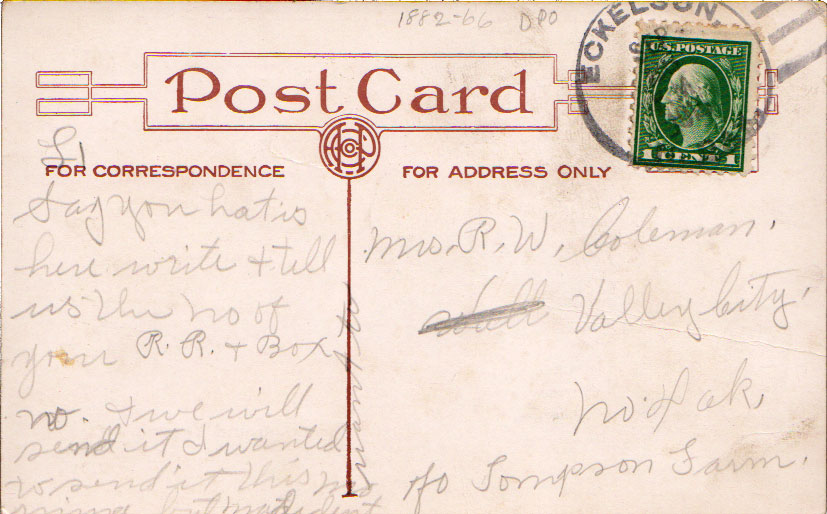 1882-66 DPO
ECKELSON,
U.S. POSTAGE
1 CENTS 1
Post Card
FOR CORRESPONDENCE
FOR ADDRESS ONLY
Say you hat is
here write & tell
us the no of
your R. R. & Box
no. & we will
send it I wanted
to send it this mo
rning but
want to
Mrs. R. W. Coleman.
Valley City.
No. Dak.
c/o Tompson Farm.